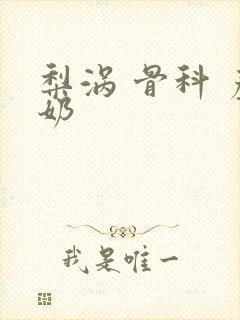 梨涡 骨科
奶
我是唯一